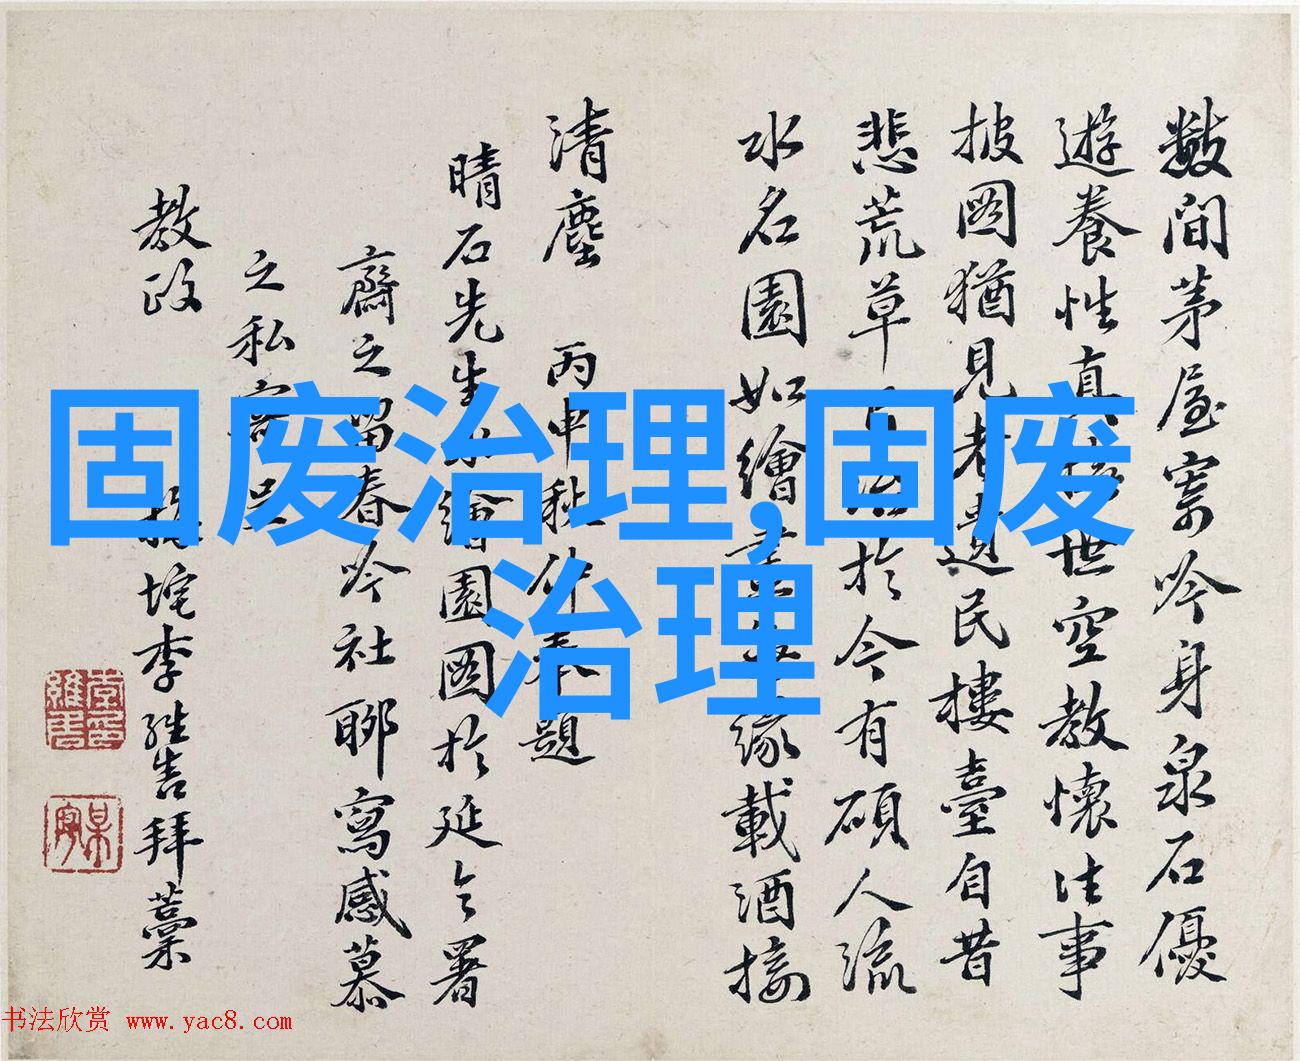 數間茅屋寄吟身泉石優
遊養性真世空教懷往事
披圖猶見老遺民樓臺自昔
悲荒草於今有碩人流
水名園如繪畫緣載酒接
清塵 丙申秋仲奉題
晴石先生水繪園圖於延令署
齋之留春吟社聊寫感慕
之私
教政 垞李拜藁
固废治理,固废
治理
书法欣赏 www.yac8.com